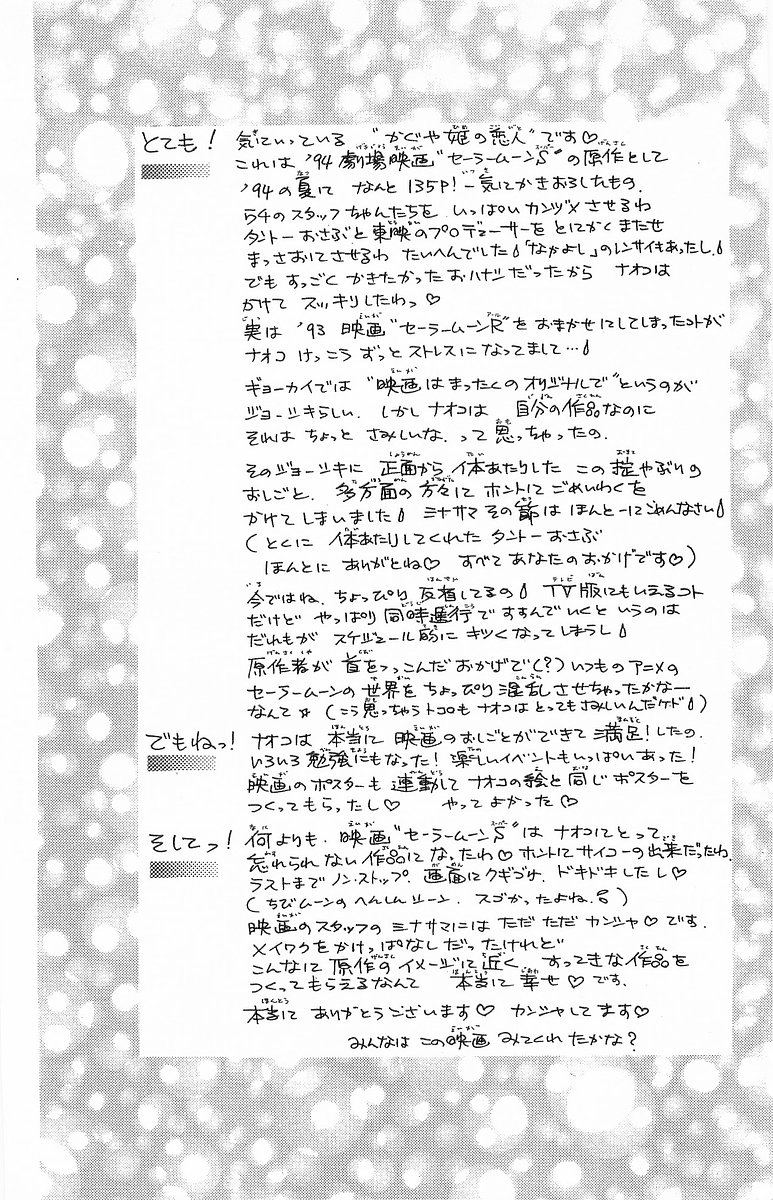 とても! 気にいっている “かぐや姫の恋人” です♡
これは '94 劇場映画 “セーラームーンS” の原作として
'94の夏に なんと 135P! 一気にかきおろしたもの.
54のスタッフちゃんたちを いっぱいカンヅメさせるわ
タントーおさぶと東映のプロデューサーを とにかくまたせ
まっさおにさせるわ たいへんでした 「なかよし」のレンサイもあったし.
でも すっごく かきたかった おハナシ だったから ナオコは
かけて スッキリしたわっ♡
実は '93 映画 “セーラームーンR” を おまかせにしてしまったコトが
ナオコ けっこう ずっと ストレスに なってまして…
ギョーカイでは “映画はまったくのオリジナルで” というのが
ジョーシキらしい. しかし ナオコは 自分の作品なのに
それは ちょっと さみしいな. って 思っちゃったの.
そのジョーシキに 正面から 体あたりした この掟やぶりの
おしごと. 多方面の 方々に ホントに ごめいわくを
かけて しまいました ミナサマ その節は ほんとーにごめんなさい
(とくに 体あたりしてくれた タントー おさぶ
ほんとに ありがとね♡ すべて あなたの おかげです♡)
今ではね. ちょっぴり 反省してるの TV版にもいえるコト
だけど やっぱり 同時進行で すすんでいくと いうのは
だれもが スケジュール的に キツくなってしまうし
原作者が 首をつっこんだ おかげで(?) いつもの アニメの
セーラームーンの 世界を ちょっぴり 混乱させちゃったかなー
なんて☆ (こう思っちゃうトコロも ナオコは とってもさみしいんだケド)
でもねっ! ナオコは 本当に 映画の おしごとができて 満足! したの.
いろいろ 勉強にもなった! 楽しいイベントもいっぱいあった!
映画の ポスターも 連動して ナオコの絵と 同じ ポスターを
つくってもらったし♡ やって よかった♡
そしてっ! 何よりも. 映画 “セーラームーンS” は ナオコにとって
忘れられない 作品に なったわ♡ ホントにサイコーの出来だったわ.
ラストまで ノン・ストップ. 画面に クギづけ. ドキドキしたし♡
(ちびムーンの へんしんシーン. スゴかったよね.)
映画のスタッフの ミナサマには ただ ただ カンシャ♡ です.
メイワクを かけっぱなし だった けれど
こんなに 原作の イメージに 近く すってきな 作品を
つくってもらえるなんて 本当に 幸せ♡ です.
本当に ありがとうございます♡ カンシャしてます♡
みんなは この映画 みてくれたかな?